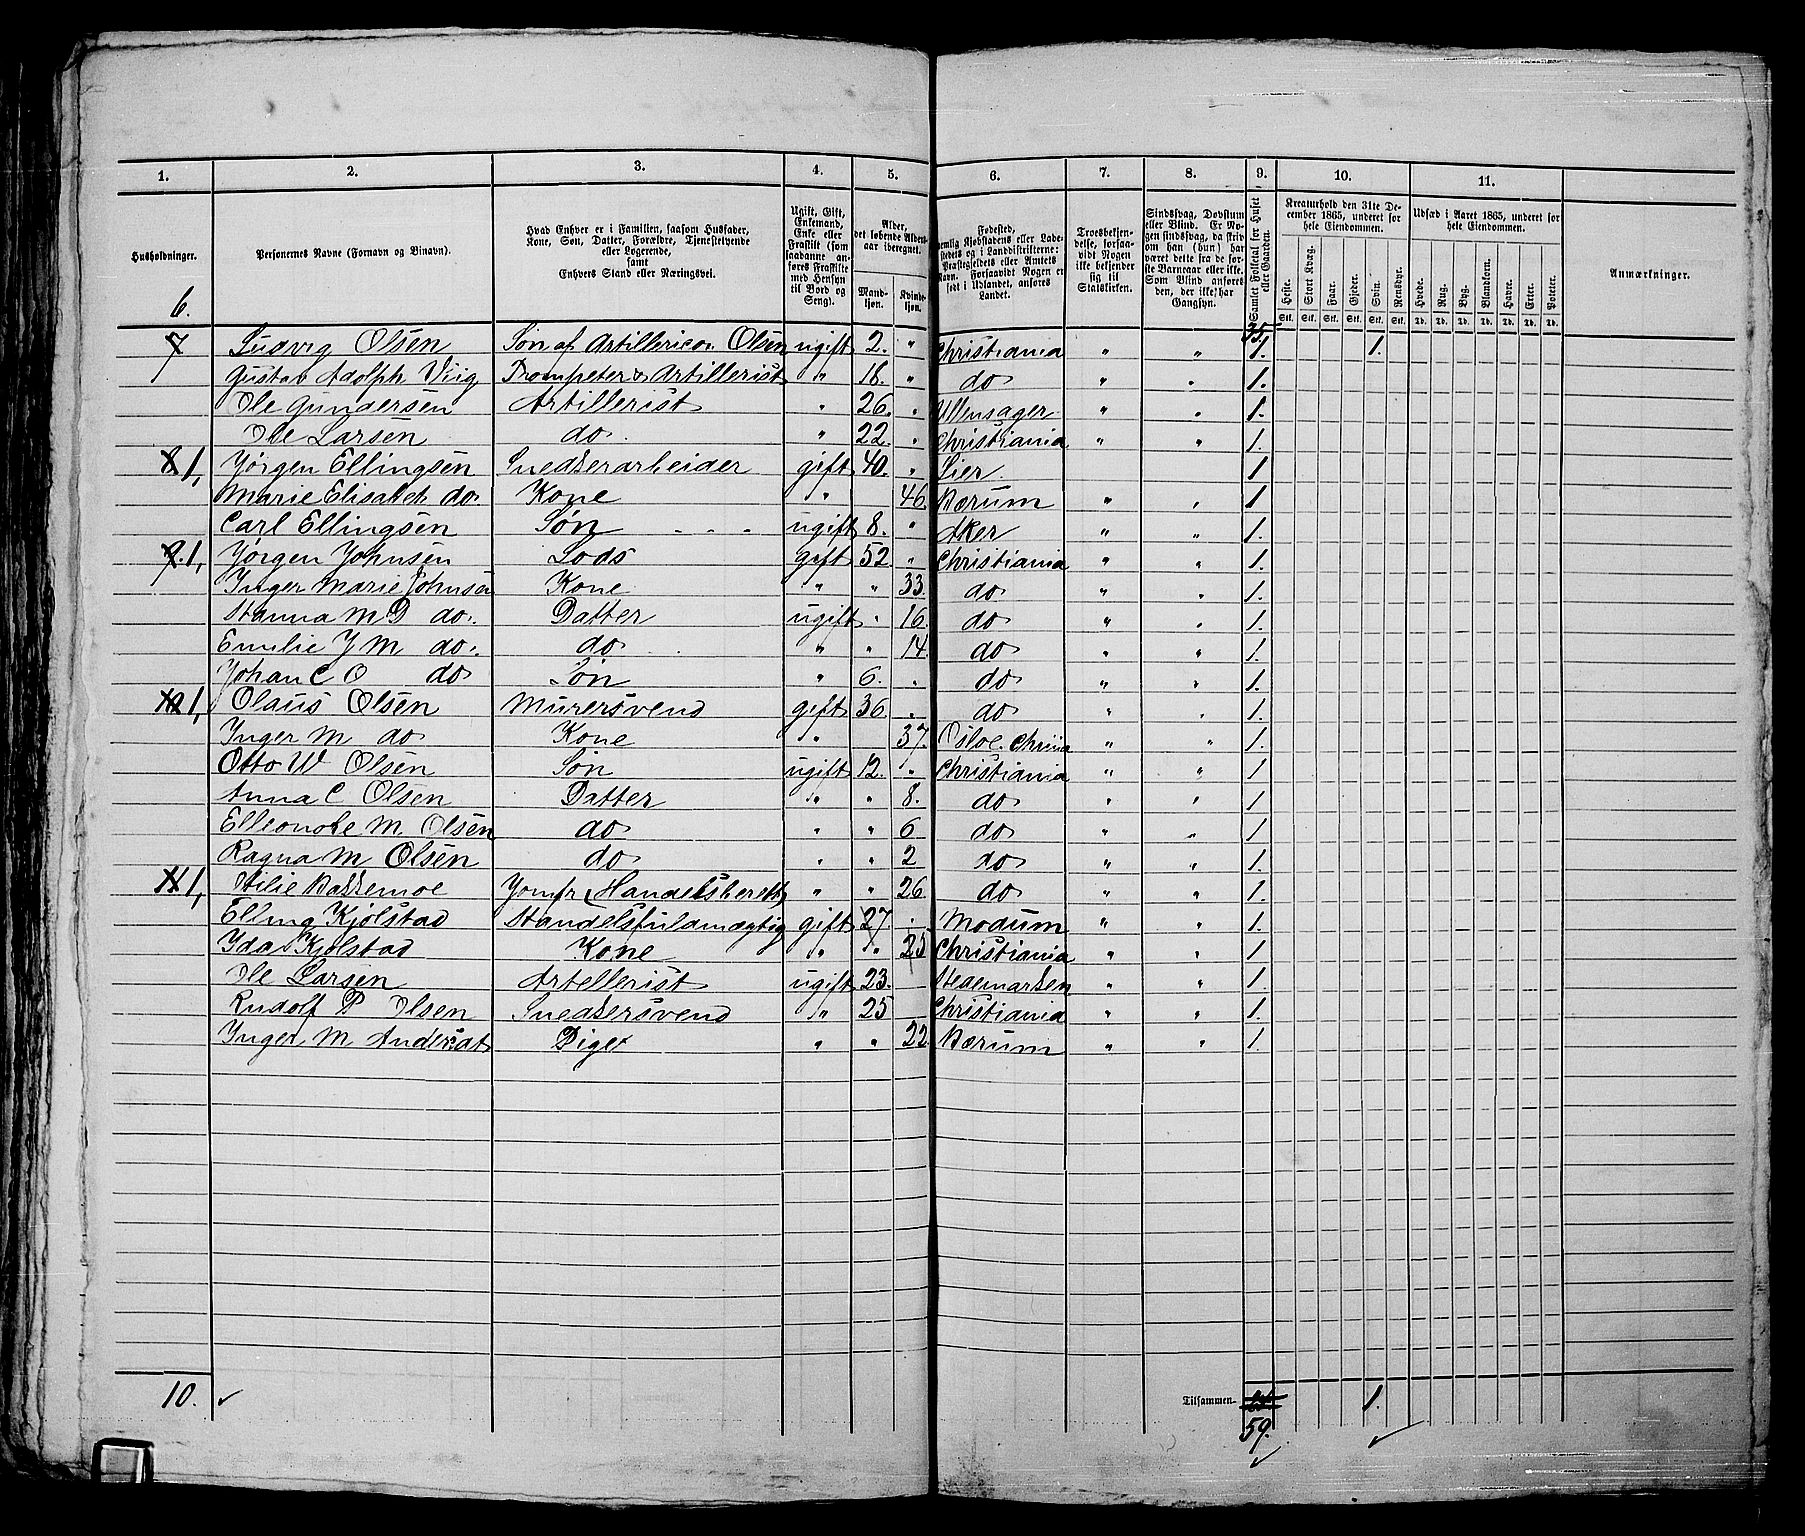 1. 2. 3. 4. 5. 6. 7. 8. 9. 10. 11.
Husholdninger.
Personernes Navne (Fornavn og Binavn).
Hvad Enhver er i Familien, saasom Husfader,
Kone, Søn, Datter, Forældre, Tjenestetyende
eller Logerende,
samt
Enhvers Stand eller Næringsvei.
Ugift, Gift,
Enkemand,
Enke eller
Fraskilt (som
saadanne an-
føres Fraskilte
med Hensyn
til Bord og
Seng).
Alder,
det løbende Alders-
aar iberegnet.
Mand-
kjøn.
Kvinde-
kjøn.
Fødested,
nemlig Kjøbstadens eller Lade-
stedets og i Landdistrikterne:
Præstegjeldets eller Amtets
Navn. Forsaavidt Nogen er
født i Udlandet, anføres
Landet.
Troesbekjen-
delse, forsaa-
vidt Nogen
ikke bekjender
sig til
Statskirken.
Sindssvag, Døvstum
eller Blind. Er No-
gen sindssvag, da skriv
om han (hun) har
været dette fra de før-
ste Barneaar eller ikke.
Som Blind anføres
den, der ikke har
Gangsyn.
Samlet Folketal for Huset
eller Gaarden.
Kreaturhold den 31te De-
cember 1865, underet for
hele Eiendommen.
Heste. Stort Kvæg. Faar. Gjeder. Svin. Rensdyr.
Stk. Stk. Stk. Stk. Stk. Stk.
Udsæd i Aaret 1865, underet for
hele Eiendommen.
Hvede. Rug. Byg. Blandkorn. Havre. Erter. Poteter.
Td. Td. Td. Td. Td. Td. Td.
Anmærkninger.
6. 35.
7 Ludvig Olsen Søn af Artillericon. Olsen ugift 2. " Christiania " " 1. 1.
Gustav Adolph Viig Trompeter & Artillerist " 18. " do " " 1.
Ole Gundersen Artillerist " 26. " Ullensager " " 1.
Ole Larsen do " 22. " Christiania " " 1.
8 1, Jørgen Ellingsen Snedkerarbeider gift 40. " Lier 1
Marie Elisabeth do. Kone " 46. Bærum " " 1
Carl Ellingsen Søn ugift 8. " Aker " " 1.
9. 1, Jørgen Johnsen Lods gift 52 " Christiania " " 1.
Inger Marie Johnsen Kone " " 33. do " " 1.
Hanna M D do. Datter ugift " 16. do " " 1.
Emilie J M do. do " " 14. do " " 1.
Johan C O do Søn " 6. " do " " 1.
10 1, Olaus Olsen Murersvend gift 36. " do " " 1.
Inger M do Kone " 37. Osloe Chriia " " 1.
Otto W Olsen Søn ugift 12. " Christiania " " 1
Anna C Olsen Datter " " 8. do " " 1
Elleonore M. Olsen do " " 6 do " " 1.
Ragna M Olsen do " " 2 do " " 1.
11 1, Otilie Bakkemoe Jomfr (Handelsberett) " " 26. do " " 1.
Elling Kjølstad Handelsfuldmægtig gift 27. " Modum " " 1.
Ida Kjølstad Kone " " 25 Christiania " " 1.
Ole Larsen Artellerist ugift 23. Hedemarken " " 1.
Rudolf P Olsen Snedkersvend " 25 Christiania " " 1.
Inger M Andersdt Pige " " 22. Bærum " " 1.
10. Tilsammen 1.
59.